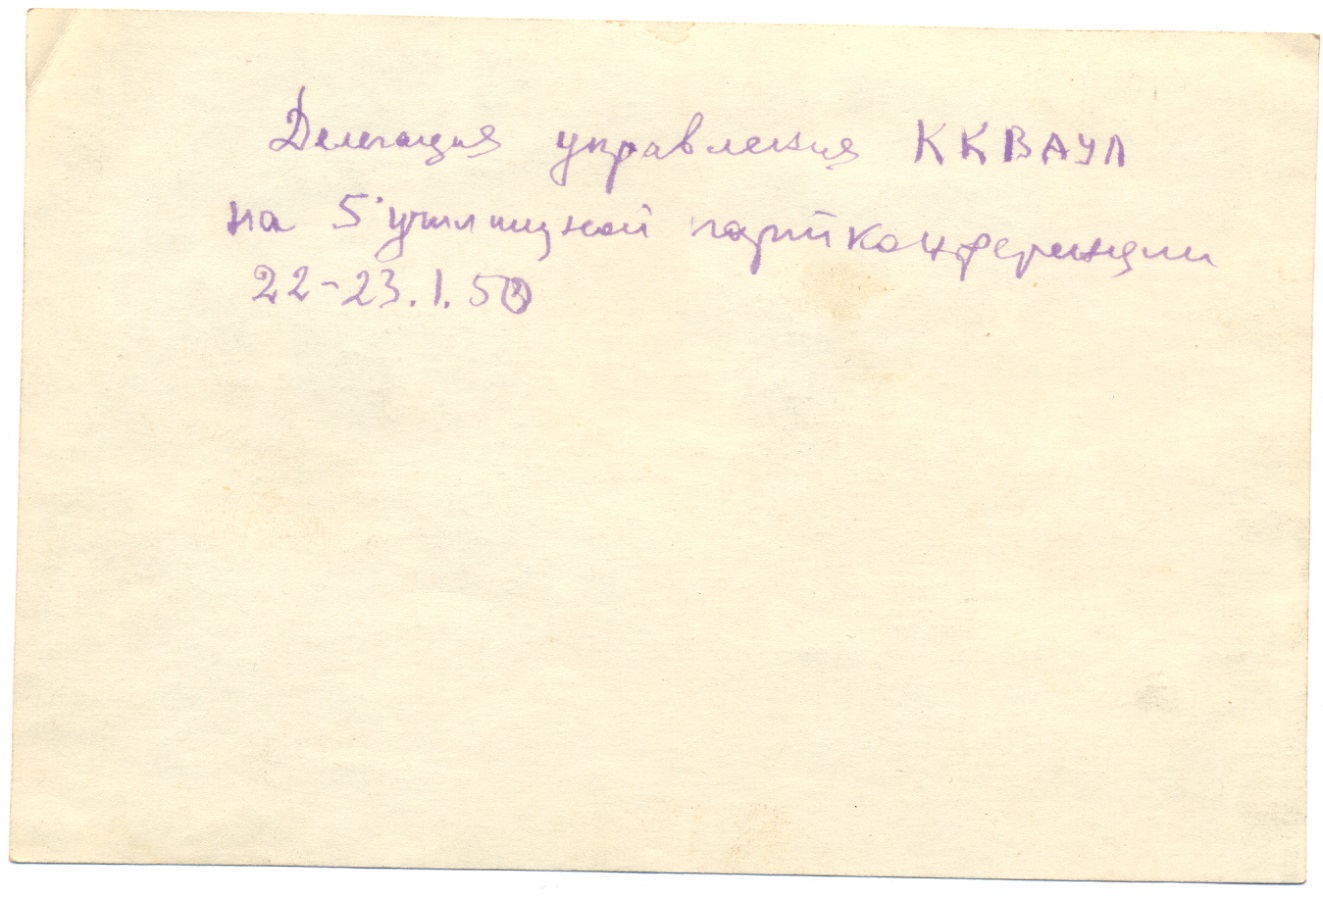 Делегация управления ККВАУЛ
на 5 училищной партконференции
22-23.1.5